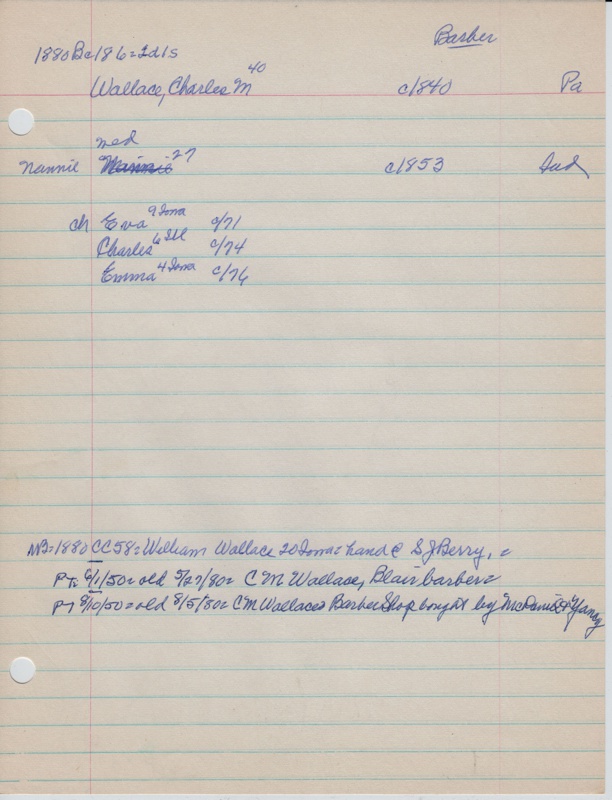 Barber
1880Bc186=2d1s
Wallace, Charles M 40 c1840 Pa
med
Nannie 27 c1853 Ind
ch Eva 9 Iowa c/71
Charles 6 Ill c/74
Emma 4 Iowa c/76
NB=1880 CC58=William Wallace 20 Iowa=hand @ S J Berry, =
PT: 6/1/50=old 5/27/80= C M Wallace, Blair barber=
PT 8/10/50=old 8/5/80= CM Wallaces Barber Shop bought by McDaniel & Yancy